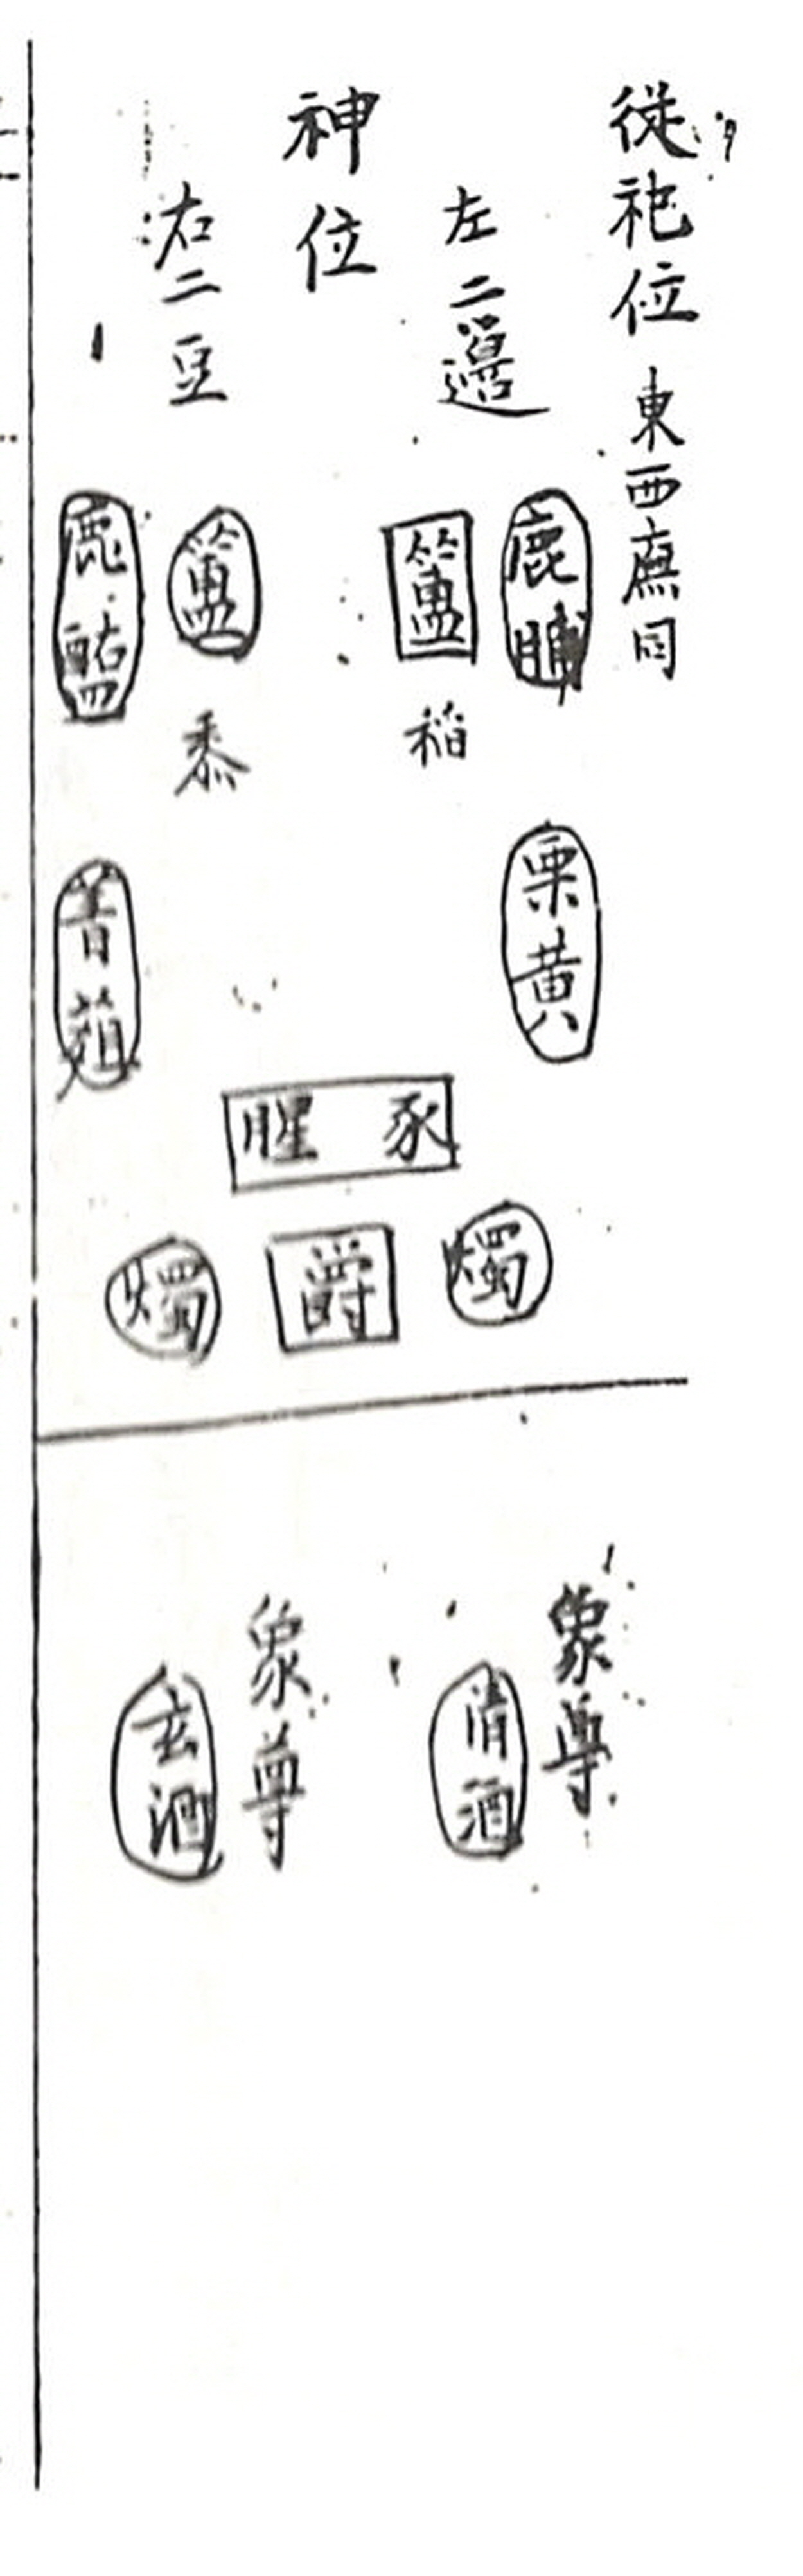 從祀位 東西廡同
左二籩
神位
右二豆
鹿脯
簠
稻
簋
黍
鹿醢
栗黃
菁菹
豕腥
燭
爵
燭
象尊
清酒
象尊
玄酒